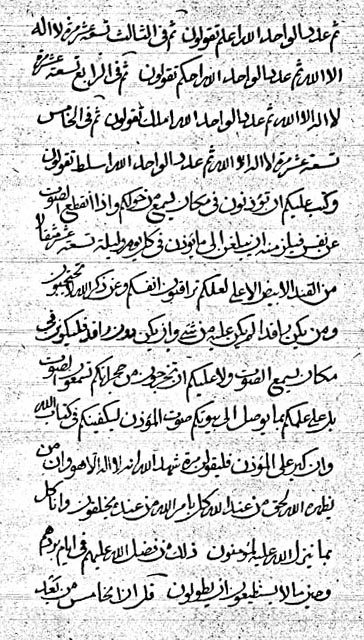 ثم عدد الواحد الله اعلم تقولون ثم فى الثالث تسعة عشر مرة لا اله
الا الله ثم عدد الواحد الله احكم تقولون ثم فى الرابع تسعة عشر مرة
لا اله الا الله ثم عدد الواحد الله املك تقولون ثم فى الخامس
تسعة عشر مرة لا اله الا الله ثم عدد الواحد الله اسلط تقولون
وكتب عليكم ان تؤذنون فى مكان يسمع من حولكم واذا انقطع الصوت
عن نفس فيلزمنه ان يبلغن الى ما يؤذن فى كل يوم وليلة تسعة عشر مثقالا
من القند الابيض الاعلى لعلكم تراقبون انفسكم وعن ذكر الله لا تحتجبون
ومن يكن راقدا لم يكن عليه من شىء وان يكن دون راقد فليكونن فى
مكان يسمع الصوت ولا عليكم ان تخرجون من حجراتكم لتسمعوا الصوت
بل على علمكم بما يوصل الى بيوتكم صوت المؤذن ليكفينكم فى كتاب الله
وان كبر على المؤذن فليقولن مرة شهد الله انه لا اله الا هو وان من
يظهره الله لحق من عند الله كل بامر الله من عنده يخلقون وانا كل
بما ينزل الله عليه لمؤمنون ذلك من فضل الله عليهم فى ايام بردهم
وحين ما لا يستطيعون ان يطولون قل ان الخامس من بعد